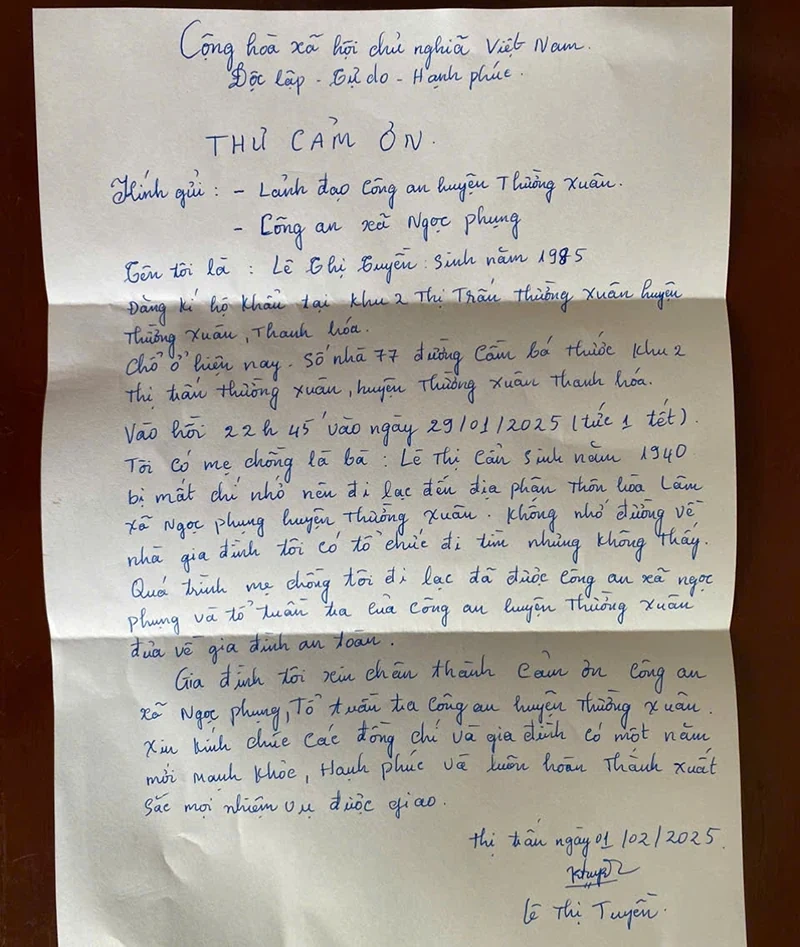 Cộng hòa xã hội chủ nghĩa Việt Nam.
Độc lập - Tự do - Hạnh phúc.
THƯ CẢM ƠN.
Kính gửi : - Lãnh đạo Công an huyện Thường Xuân.
- Công an xã Ngọc phụng
Tên tôi là : Lê Thị Tuyền : Sinh năm 1985
Đăng kí hộ khẩu tại khu 2 Thị Trấn Thường Xuân huyện
Thường Xuân, Thanh hóa.
Chổ ở hiện nay. Số nhà 77 đường Cầm bá thước Khu 2
thị trấn thường xuân, huyện Thường Xuân Thanh hóa.
Vào hồi 22h 45' vào ngày 29/01/2025 (tức 1 tết).
Tôi có mẹ chồng là bà : Lê Thị Cần Sinh năm 1940
bị mất chí nhớ nên đi lạc đến địa phận Thôn hòa Lâm
xã Ngọc phụng huyện Thường Xuân. Không nhớ đường về
nhà gia đình tôi có tổ chức đi tìm nhưng không thấy.
Quá trình mẹ chồng tôi đi lạc đã được Công an xã ngọc
phụng và tổ tuần tra của Công an huyện Thường Xuân
đưa về gia đình an toàn.
Gia đình tôi xin chân thành Cảm ơn Công an
xã Ngọc phụng, Tổ tuần tra Công an huyện Thường Xuân.
Xin kính chúc Các đồng chí và gia đình Có một năm
mới mạnh khỏe, Hạnh phúc và luôn hoàn Thành xuất
Sắc mọi nhiệm vụ được giao.
Thị trấn ngày 01/02/2025.
Lê Thị Tuyền.